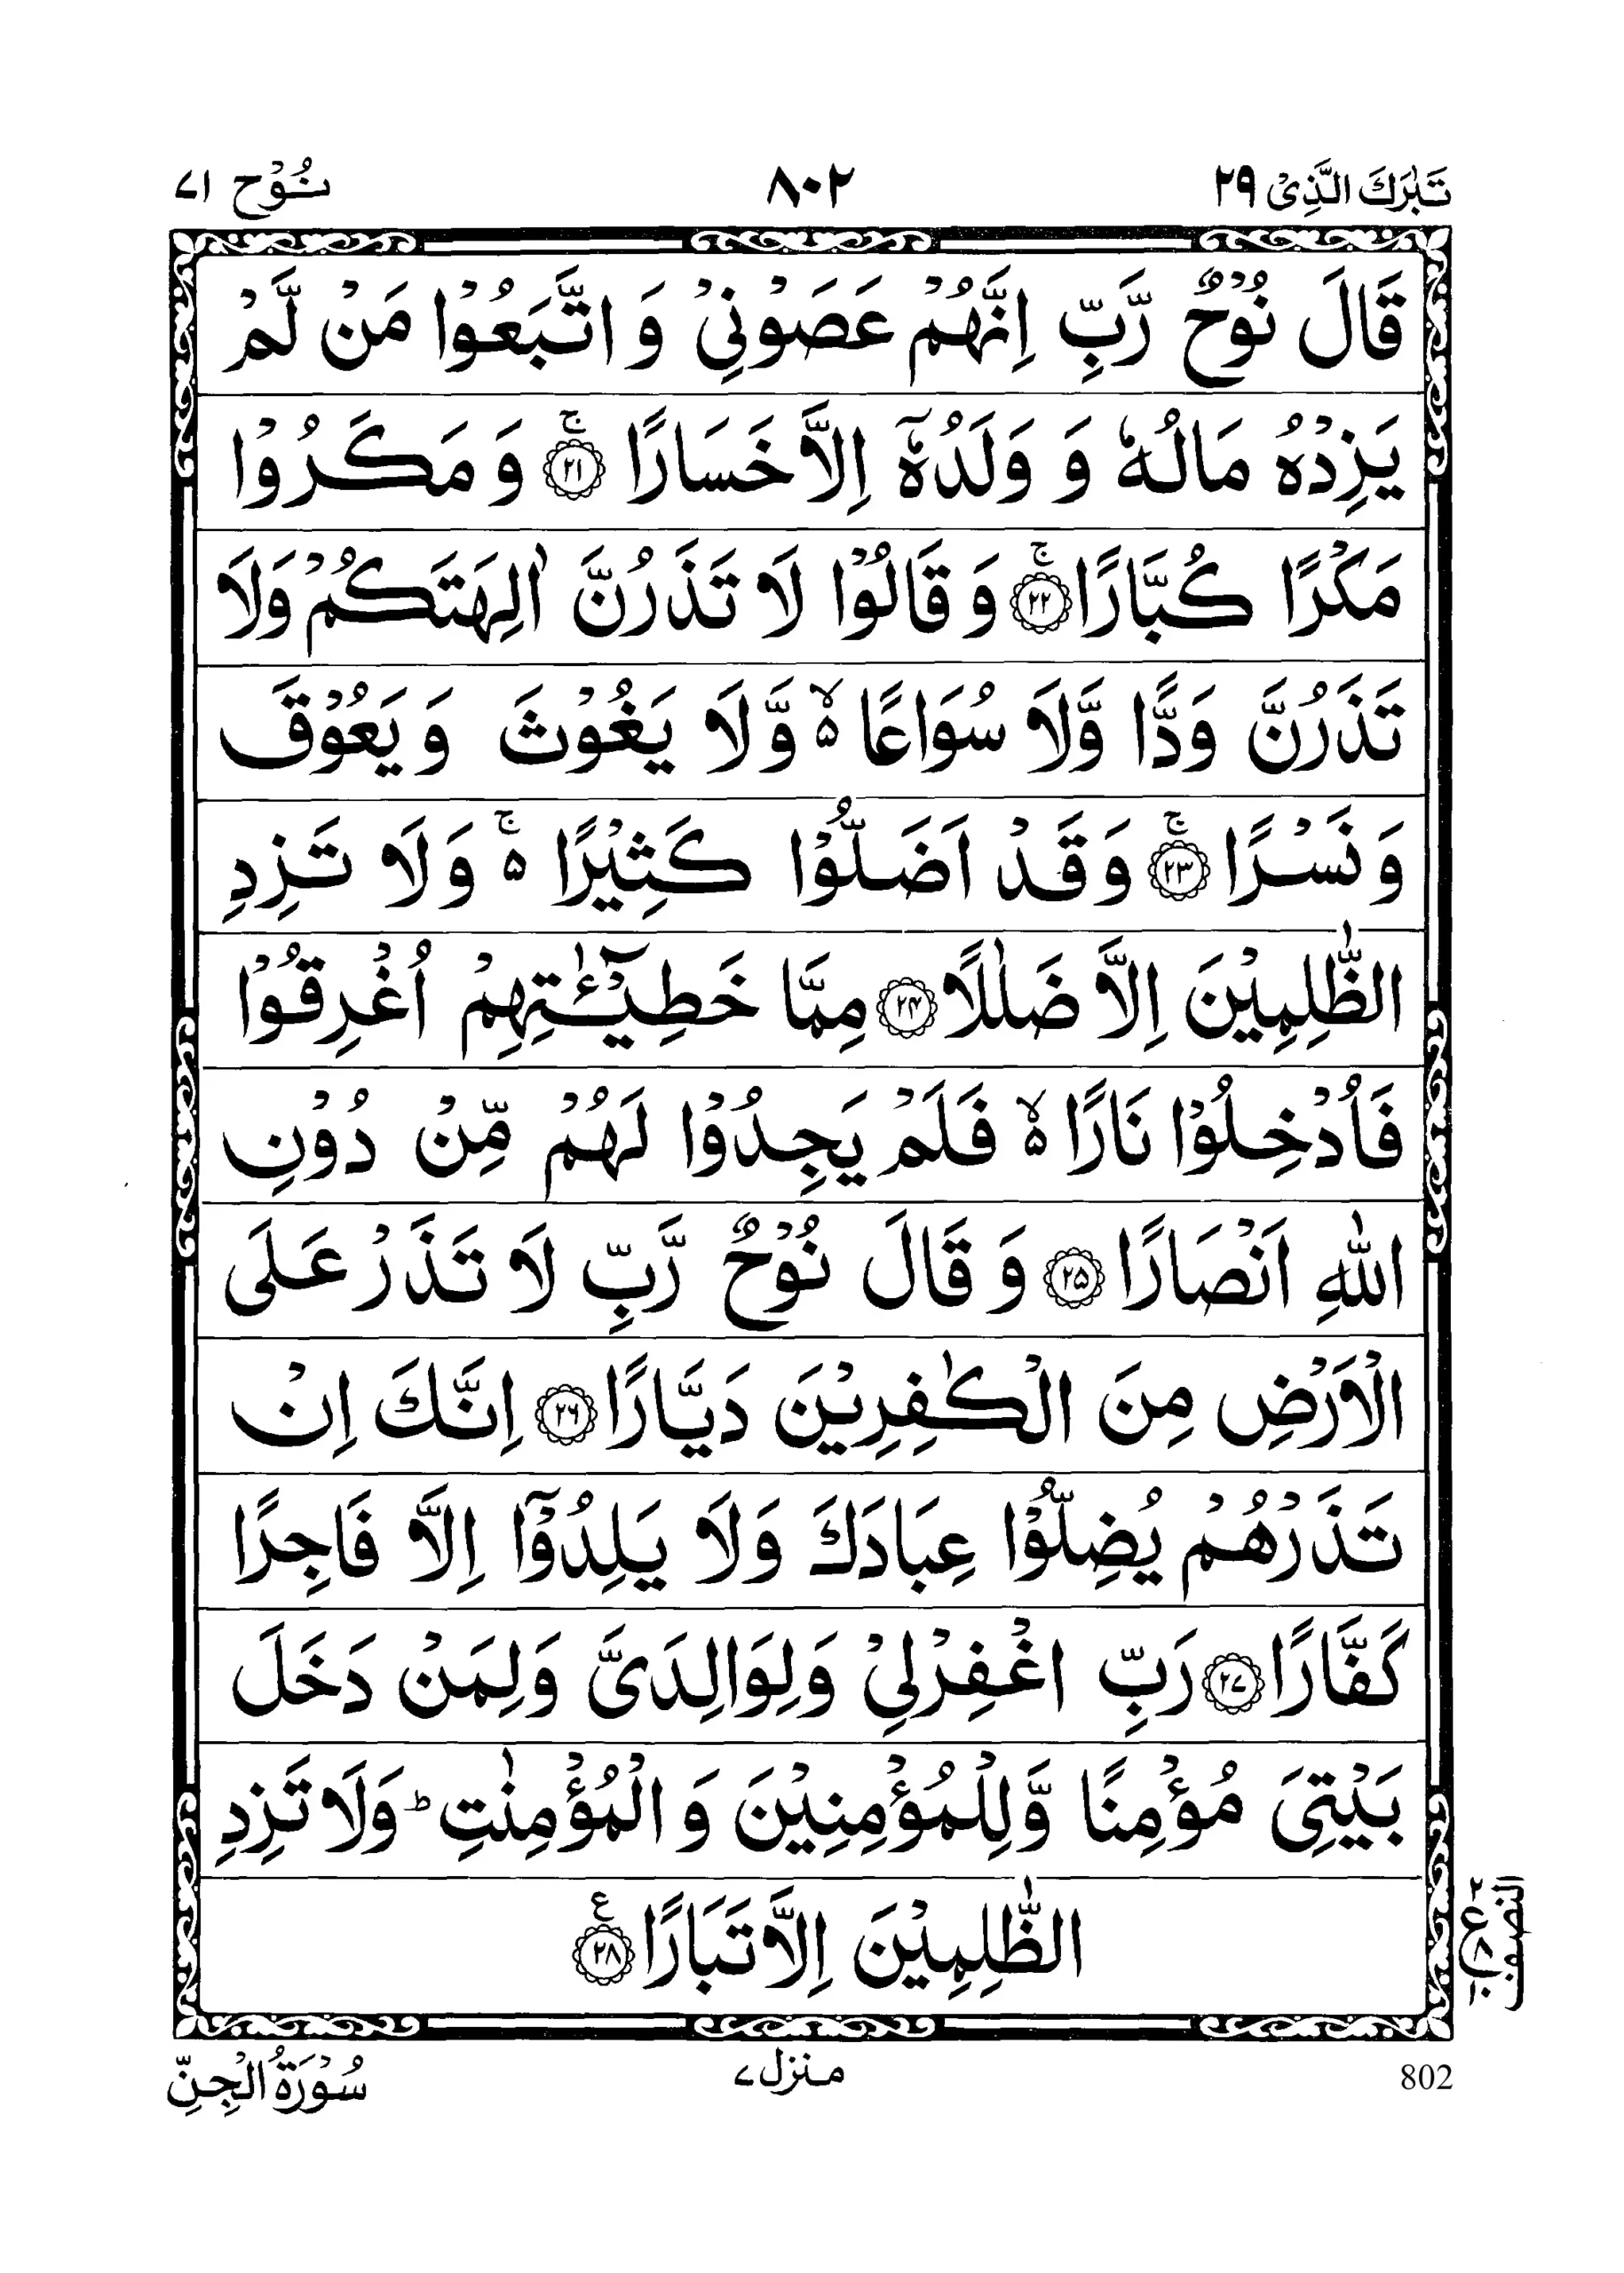 تَبٰرَكَ الَّذِیْ ۲۹
۸۰۲
نُوْح ۷۱
قَالَ نُوْحٌ رَّبِّ اِنَّهُمْ عَصَوْنِیْ وَ اتَّبَعُوْا مَنْ لَّمْ
یَزِدْهُ مَالُهٗ وَ وَلَدُهٗۤ اِلَّا خَسَارًا ۚ‏﴿۲۱﴾ وَ مَكَرُوْا
مَكْرًا كُبَّارًا ۚ‏﴿۲۲﴾ وَ قَالُوْا لَا تَذَرُنَّ اٰلِهَتَكُمْ وَلَا
تَذَرُنَّ وَدًّا وَّلَا سُوَاعًا ۙ۵ وَّلَا یَغُوْثَ وَ یَعُوْقَ
وَ نَسْرًا ۚ‏﴿۲۳﴾ وَ قَدْ اَضَلُّوْا كَثِیْرًا ۚ۵ وَلَا تَزِدِ
الظّٰلِمِیْنَ اِلَّا ضَلٰلًا ﴿۲۴﴾ مِمَّا خَطِیْٓـٰٔتِهِمْ اُغْرِقُوْا
فَاُدْخِلُوْا نَارًا ۙ۵ فَلَمْ یَجِدُوْا لَهُمْ مِّنْ دُوْنِ
اللّٰهِ اَنْصَارًا ﴿۲۵﴾ وَ قَالَ نُوْحٌ رَّبِّ لَا تَذَرْ عَلَی
الْاَرْضِ مِنَ الْكٰفِرِیْنَ دَیَّارًا ﴿۲۶﴾ اِنَّكَ اِنْ
تَذَرْهُمْ یُضِلُّوْا عِبَادَكَ وَلَا یَلِدُوْۤا اِلَّا فَاجِرًا
كَفَّارًا ﴿۲۷﴾ رَبِّ اغْفِرْلِیْ وَلِوَالِدَیَّ وَلِمَنْ دَخَلَ
بَیْتِیَ مُؤْمِنًا وَّلِلْمُؤْمِنِیْنَ وَ الْمُؤْمِنٰتِ ؕ وَلَا تَزِدِ
الظّٰلِمِیْنَ اِلَّا تَبَارًا ﴿۲۸﴾ ع
النصف
ع
802
منزل ۷
سُوْرَةُ الْجِنِّ